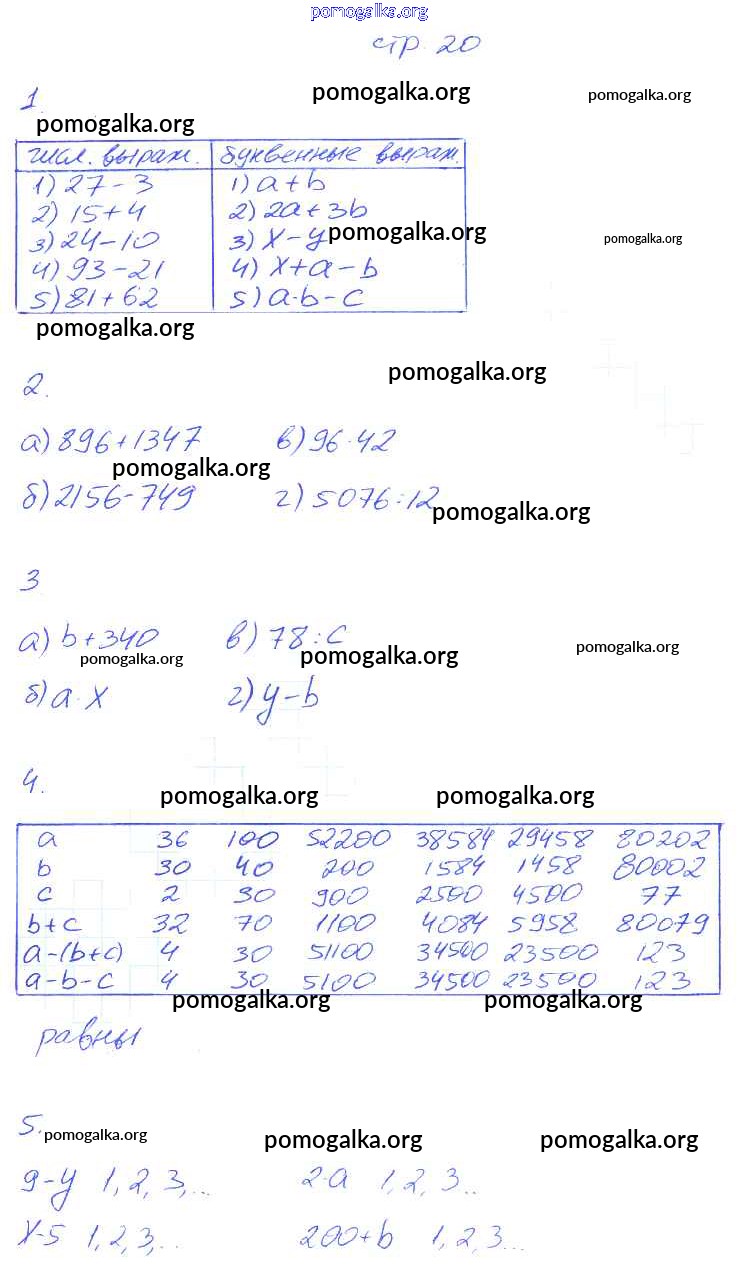 pomogalka.org
стр. 20
pomogalka.org pomogalka.org
1.
pomogalka.org
числ. выраж. буквенные выраж.
1) 27-3 1) a+b
2) 15+4 2) 2a+3b
3) 24-10 3) x-y pomogalka.org pomogalka.org
4) 93-21 4) x+a-b
5) 81+62 5) a·b-c
pomogalka.org
2. pomogalka.org
а) 896+1347 в) 96·42
pomogalka.org
б) 2156-749 г) 5076:12
pomogalka.org
3
а) b+340 в) 78:c
pomogalka.org pomogalka.org pomogalka.org
б) a·x г) y-b
4.
pomogalka.org pomogalka.org
a 36 100 52200 38584 29458 80202
b 30 40 200 1584 1458 80002
c 2 30 900 2500 4500 77
b+c 32 70 1100 4084 5958 80079
a-(b+c) 4 30 51100 34500 23500 123
a-b-c 4 30 5100 34500 23500 123
pomogalka.org pomogalka.org
равны
5.
pomogalka.org pomogalka.org pomogalka.org
9-y 1, 2, 3,... 2·a 1, 2, 3..
x-5 1, 2, 3,.. 200+b 1, 2, 3...